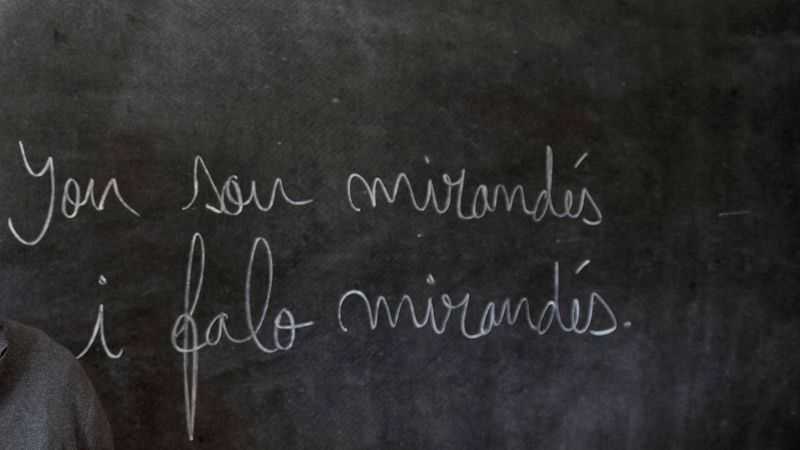 You sou mirandés
i falo mirandés.